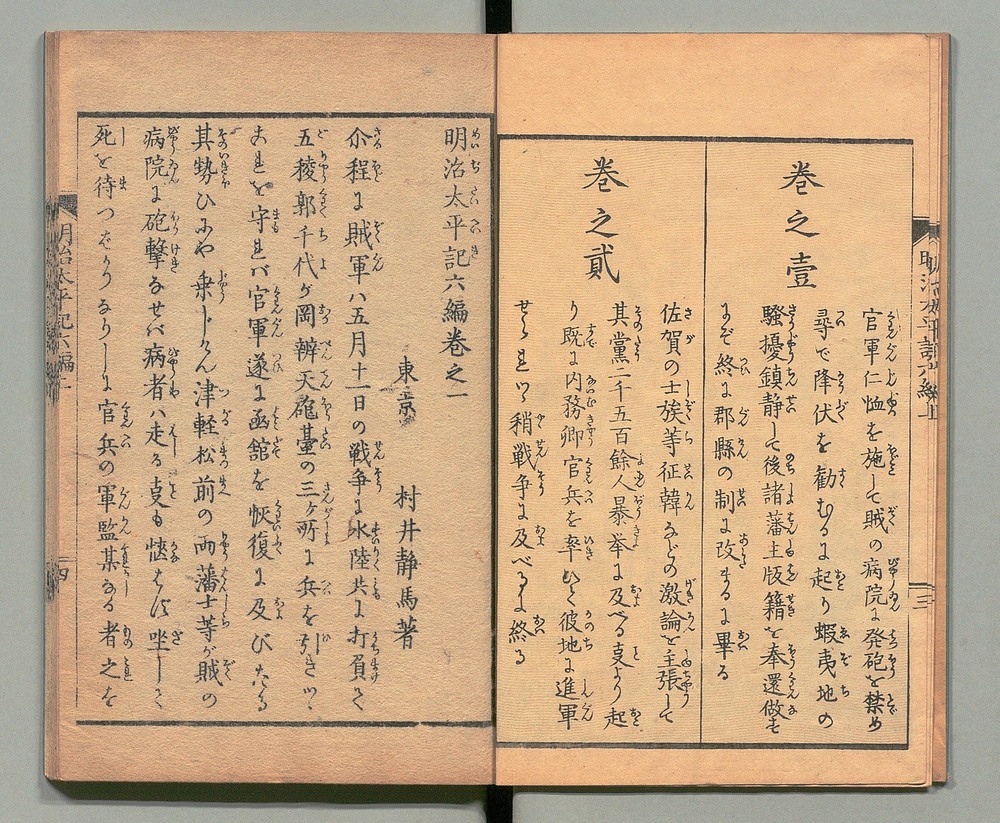 巻之壹
官軍仁恤を施して賊の病院に発砲を禁め
尋で降伏を勧むるに起り蝦夷地の
騒擾鎮静して後諸藩主版籍を奉還做を
まで終に郡縣の制に改まるに畢る
巻之貳
佐賀の士族等征韓などの激論を主張して
其黨二千五百餘人暴挙に及べる㕝より起
り既に内務卿官兵を率ひて彼地に進軍
せられツヽ稍戦争に及べるに終る
明治太平記六編巻之一
東京 村井静馬著
尒程に賊軍ハ五月十一日の戦争に水陸共に打負て
五稜郭千代ヶ岡辨天砲臺の三ヶ所に兵を引きツヽ
これを守れバ官軍遂に函舘を恢復に及びたる
其勢ひにや乗じけん津軽松前の両藩士等が賊の
病院に砲撃なせバ病者ハ走る㕝も愜はず坐して
死を待つばかりなりしに官兵の軍監某なる者之を
明治太平記六編上
三
明治太平記六編上
四